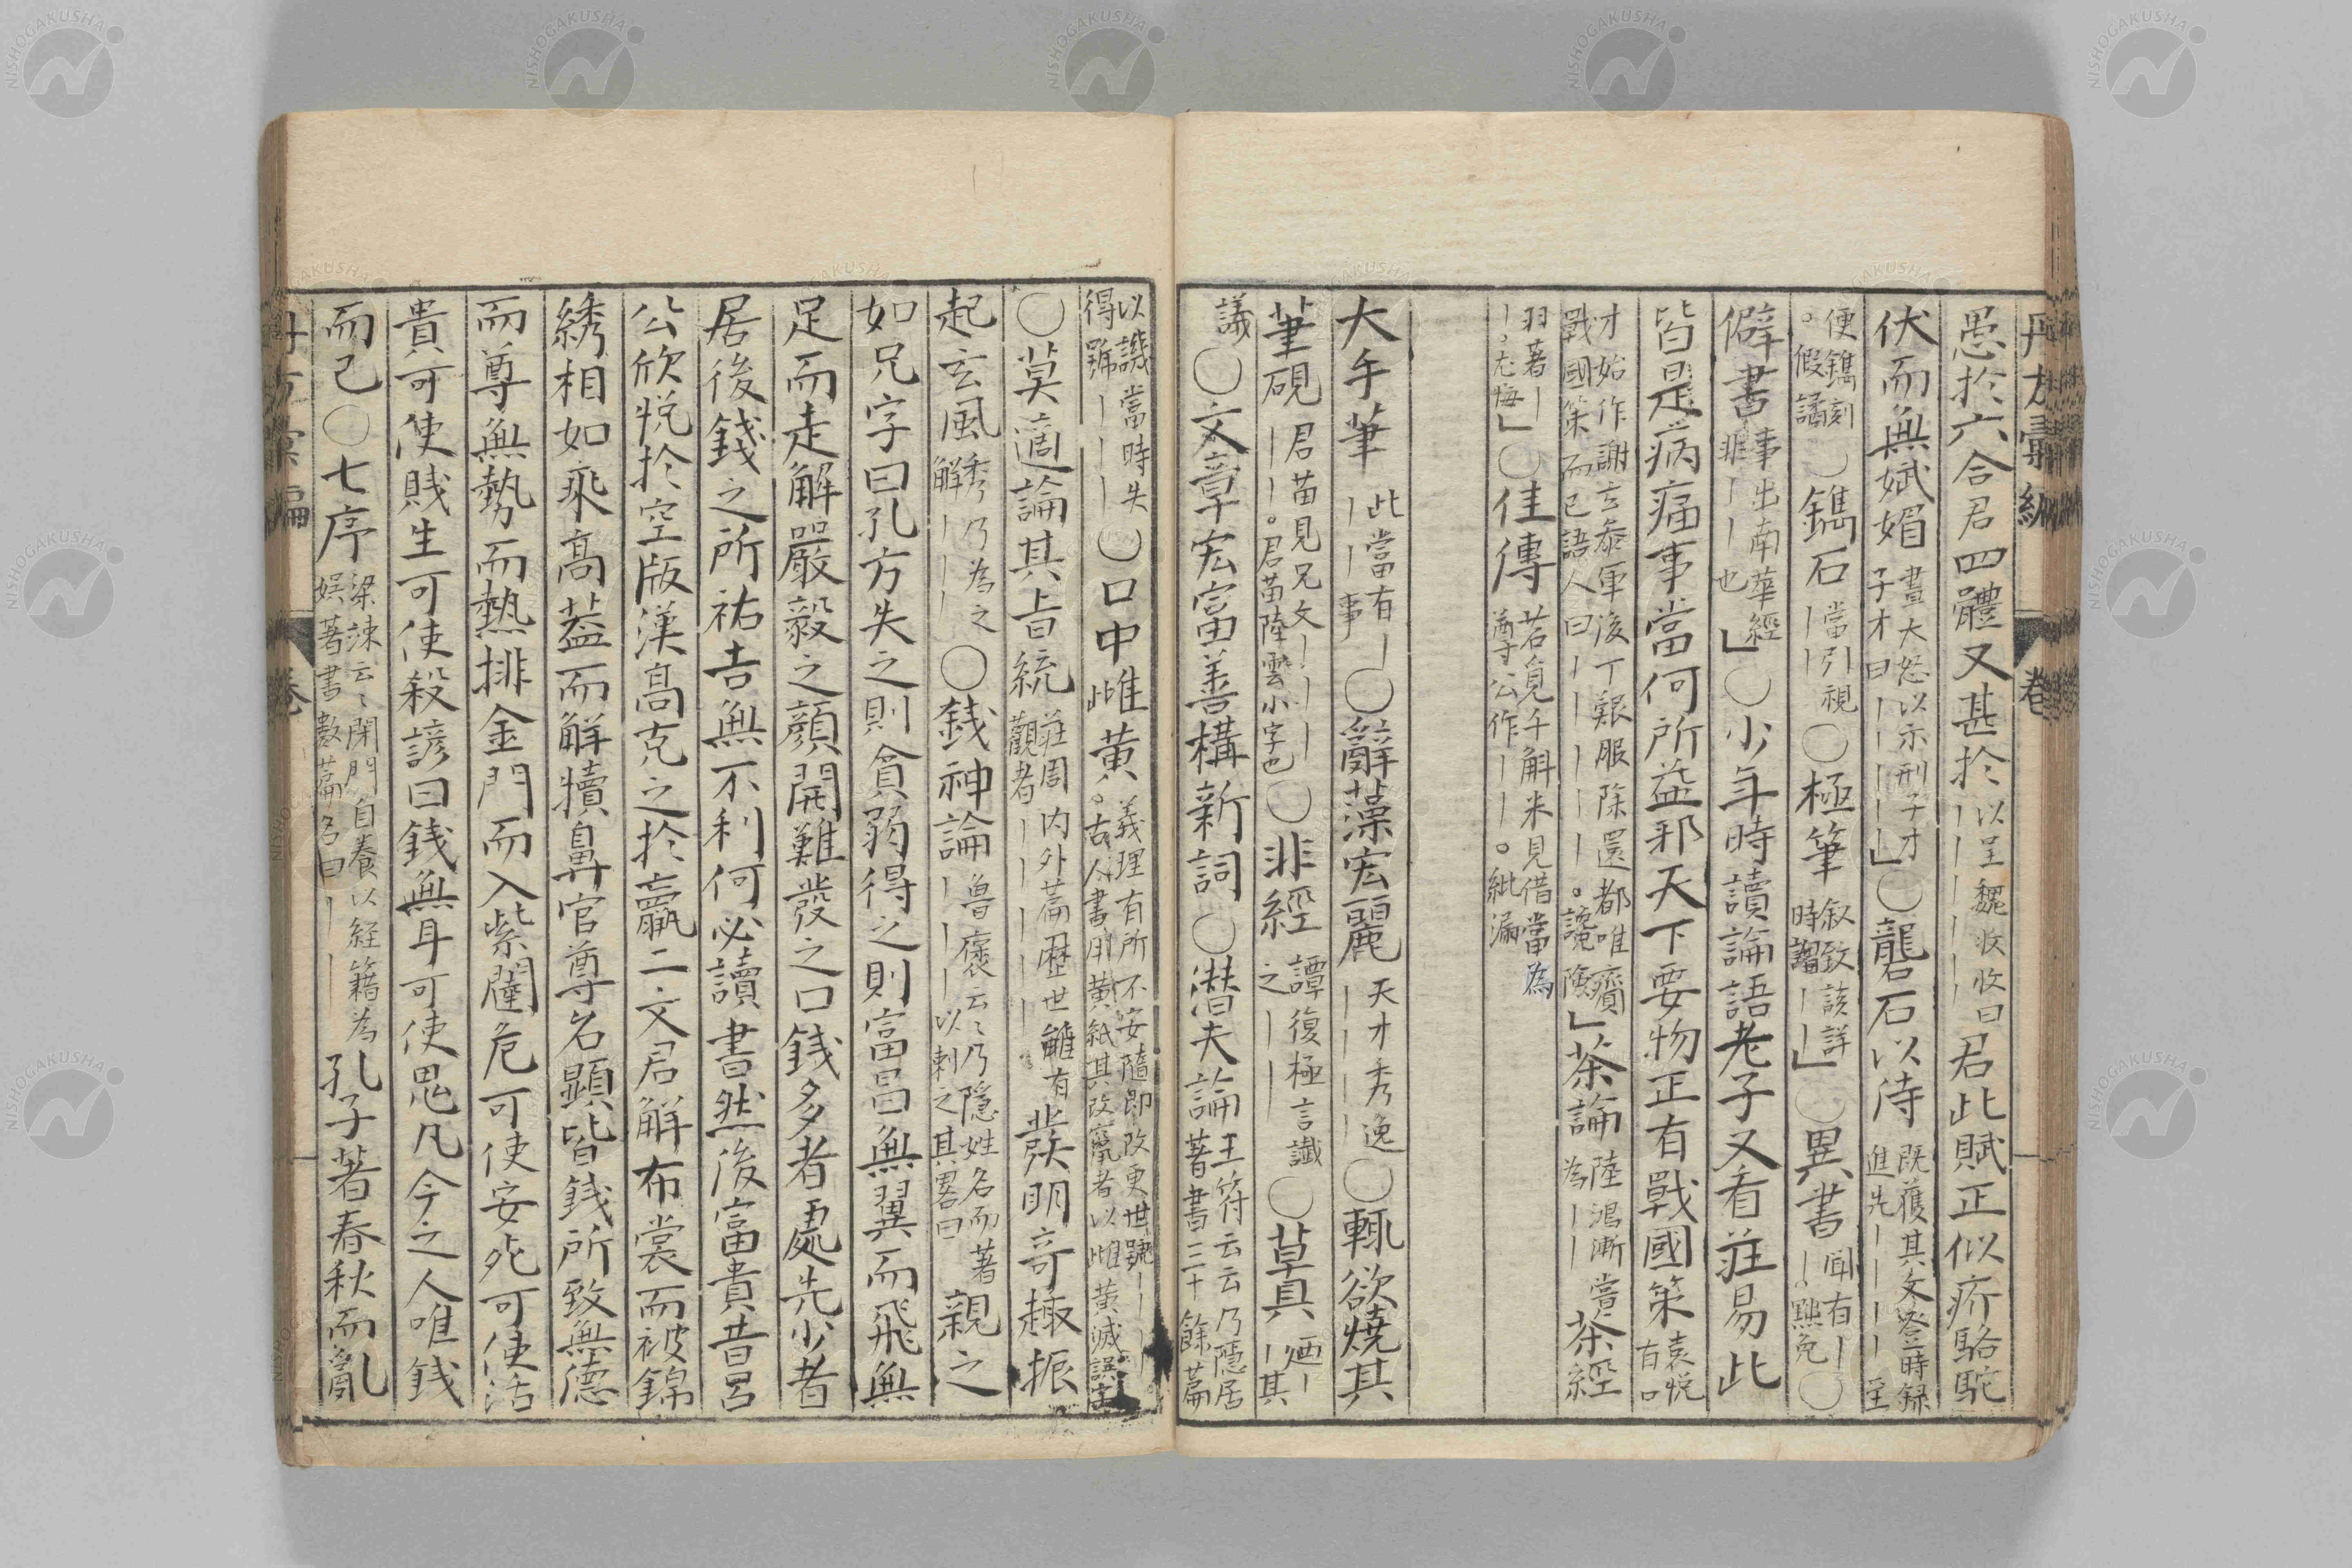 丹方彙編 卷
愚於六合君四體又甚於以呈魏收收曰丨丨丨丨丨丨君此賦正似疥駱駝
伏而無娬媚晝大怒以示邢子才子才曰丨丨丨丨」○礱石以待既獲其文登時録進先丨丨丨丨至
便鐫刻。假譎○鐫石當引視丨丨○極筆叙致該詳時謂丨丨」○異書聞有丨丨。㸃免○
僻書事出南華經非丨丨也」○少年時讀論語老子又看莊易此
皆是病痛事當何所益邪天下要物正有戰國策袁悦有口
才始作謝玄参軍後丁艱服除還都唯齎戰國策而已語人曰丨丨丨丨。讒險」茶論陸鴻漸嘗為丨丨茶經
羽著丨丨。尤悔」○佳傳若覓千斛米見借當為尊公作丨丨。紕漏
大手筆此當有丨丨丨事○辭藻宏麗天才秀逸丨丨丨丨○輒欲燒其
筆硯君苗見兄文丨丨丨丨丨。君苗陸雲小字也○非經譚復極言讖之丨丨○草具廼丨丨其
議○文章宏富善構新詞○潛夫論王符云云乃隱居著書三十餘篇
以譏當時失得號丨丨丨○口中雌黃義理有所不安隨即改更世號丨丨丨丨。古人書用黄紙其改竄者以雌黄滅誤字
○莫適論其旨統莊周内外篇歴世雖有觀者丨丨丨丨丨。發明奇趣振
起玄風秀乃為之解丨丨丨○錢神論魯褒云〻乃隱姓名而著丨丨丨以刺之其畧曰親之
如兄字曰孔方失之則貪弱得之則富昌無翼而飛無
足而走解嚴毅之顔開難發之口錢多者處先少者
居後錢之所祐吉無不利何必讀書然後富貴昔呂
公欣悦於空版漢高克之於嬴二文君解布裳而被錦
綉相如乘高蓋而解犢鼻官尊名顯皆錢所致無德
而尊無勢而熱排金門而入紫闥危可使安死可使活
貴可使賤生可使殺諺曰錢無耳可使鬼凡今之人唯錢
而已○七序梁竦云〻閉門自養以経籍為娯著書數篇名曰丨丨孔子著春秋而亂
丹方彙編 卷